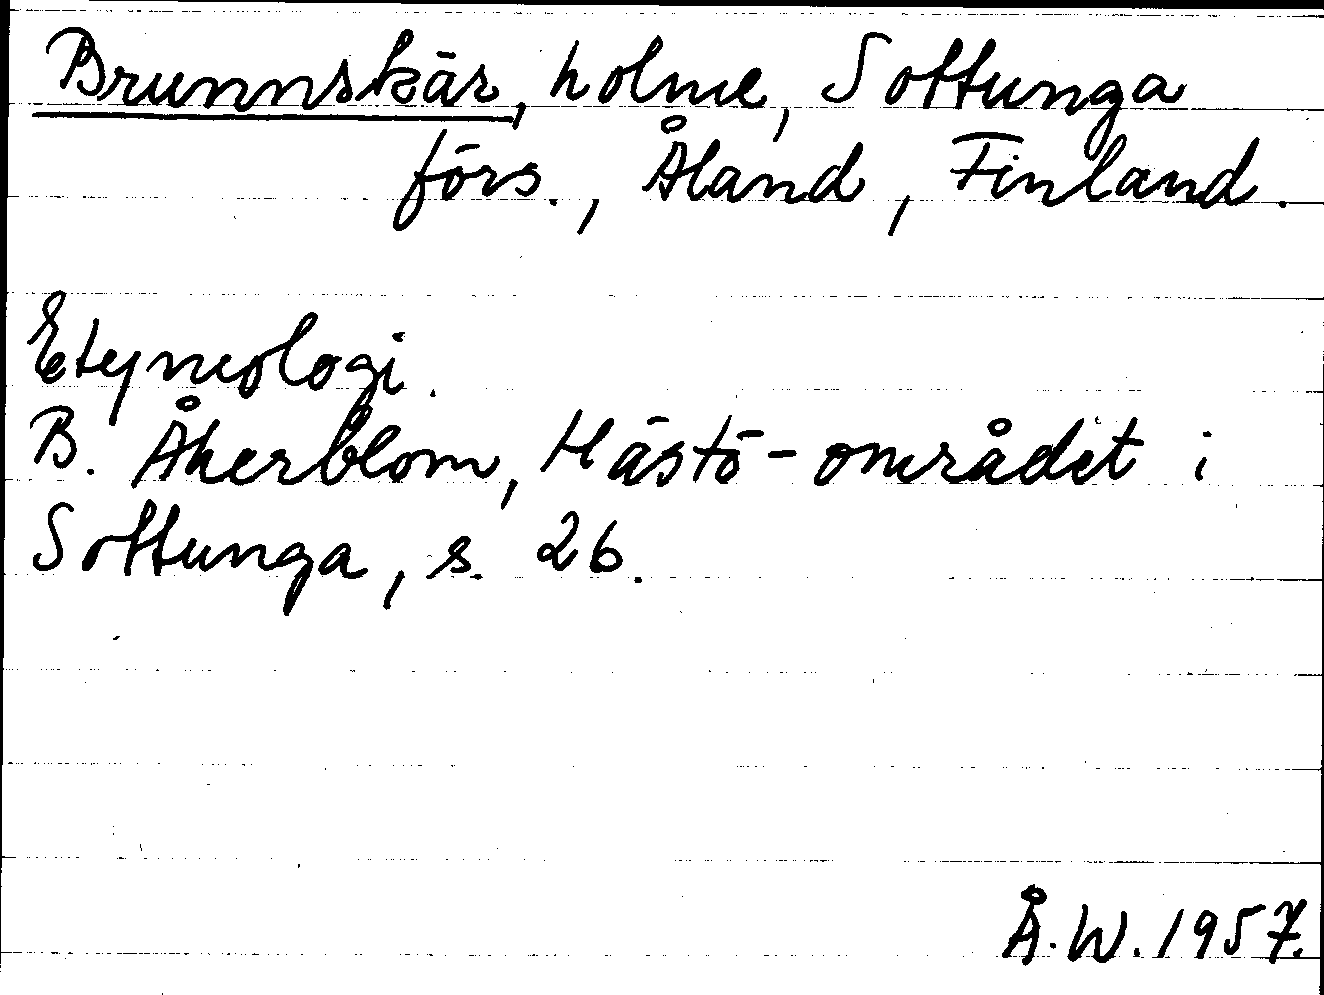 Brunnskär, holme, Sottunga
förs., Åland, Finland.
Etymologi.
B. Åkerblom, Hästö-området i
Sottunga, s. 26.
Å.W. 1957.